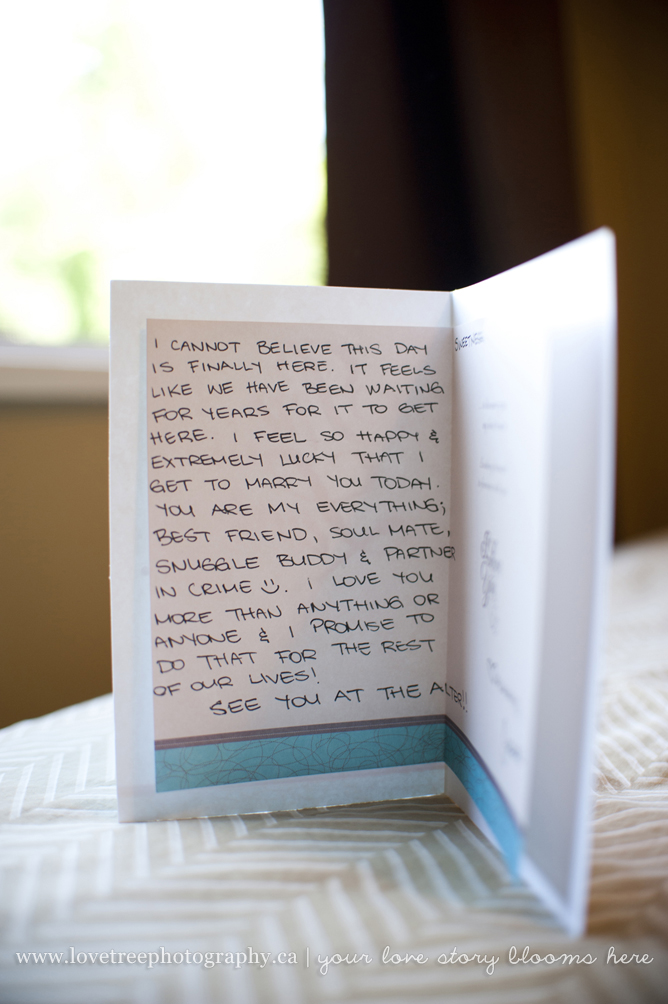 I CANNOT BELIEVE THIS DAY
IS FINALLY HERE. IT FEELS
LIKE WE HAVE BEEN WAITING
FOR YEARS FOR IT TO GET
HERE. I FEEL SO HAPPY &
EXTREMELY LUCKY THAT I
GET TO MARRY YOU TODAY.
YOU ARE MY EVERYTHING;
BEST FRIEND, SOUL MATE,
SNUGGLE BUDDY & PARTNER
IN CRIME :). I LOVE YOU
MORE THAN ANYTHING OR
ANYONE & I PROMISE TO
DO THAT FOR THE REST
OF OUR LIVES!
SEE YOU AT THE ALTER!!
www.lovetreephotography.ca | your love story blooms here